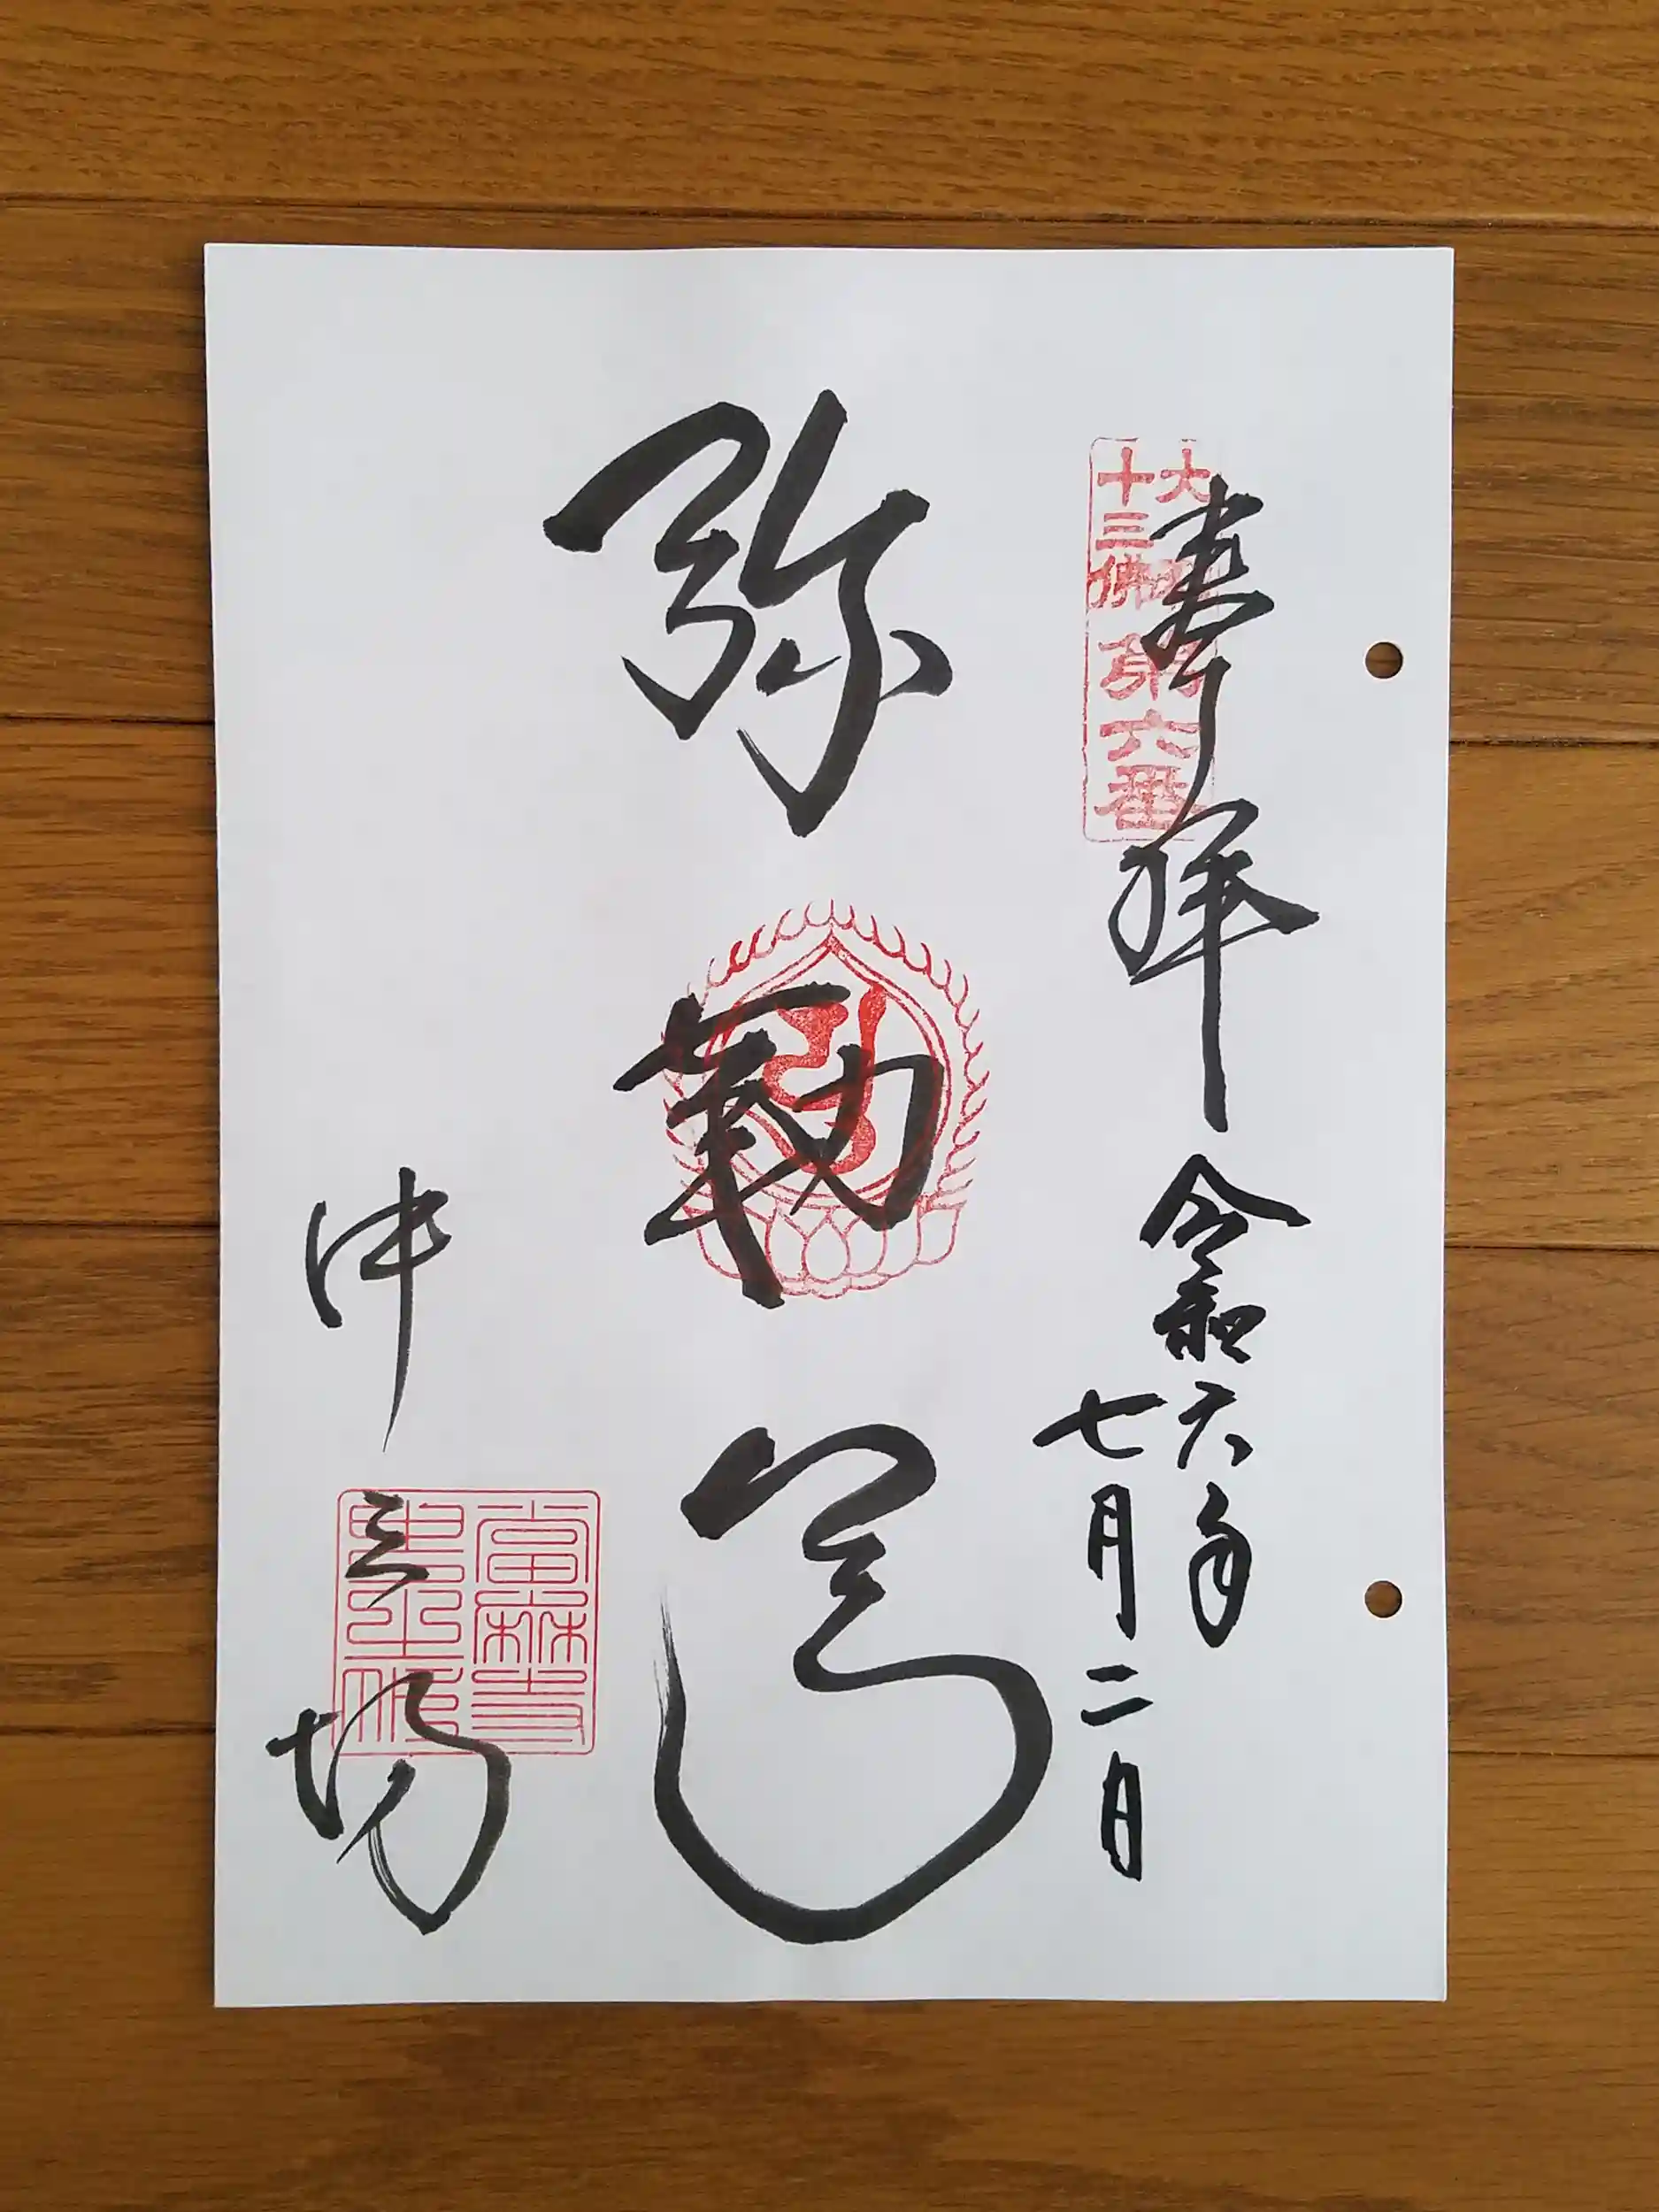 奉拝 令和六年
七月二日
大和
十三佛 第六番
弥勒尊
中之坊
當麻寺